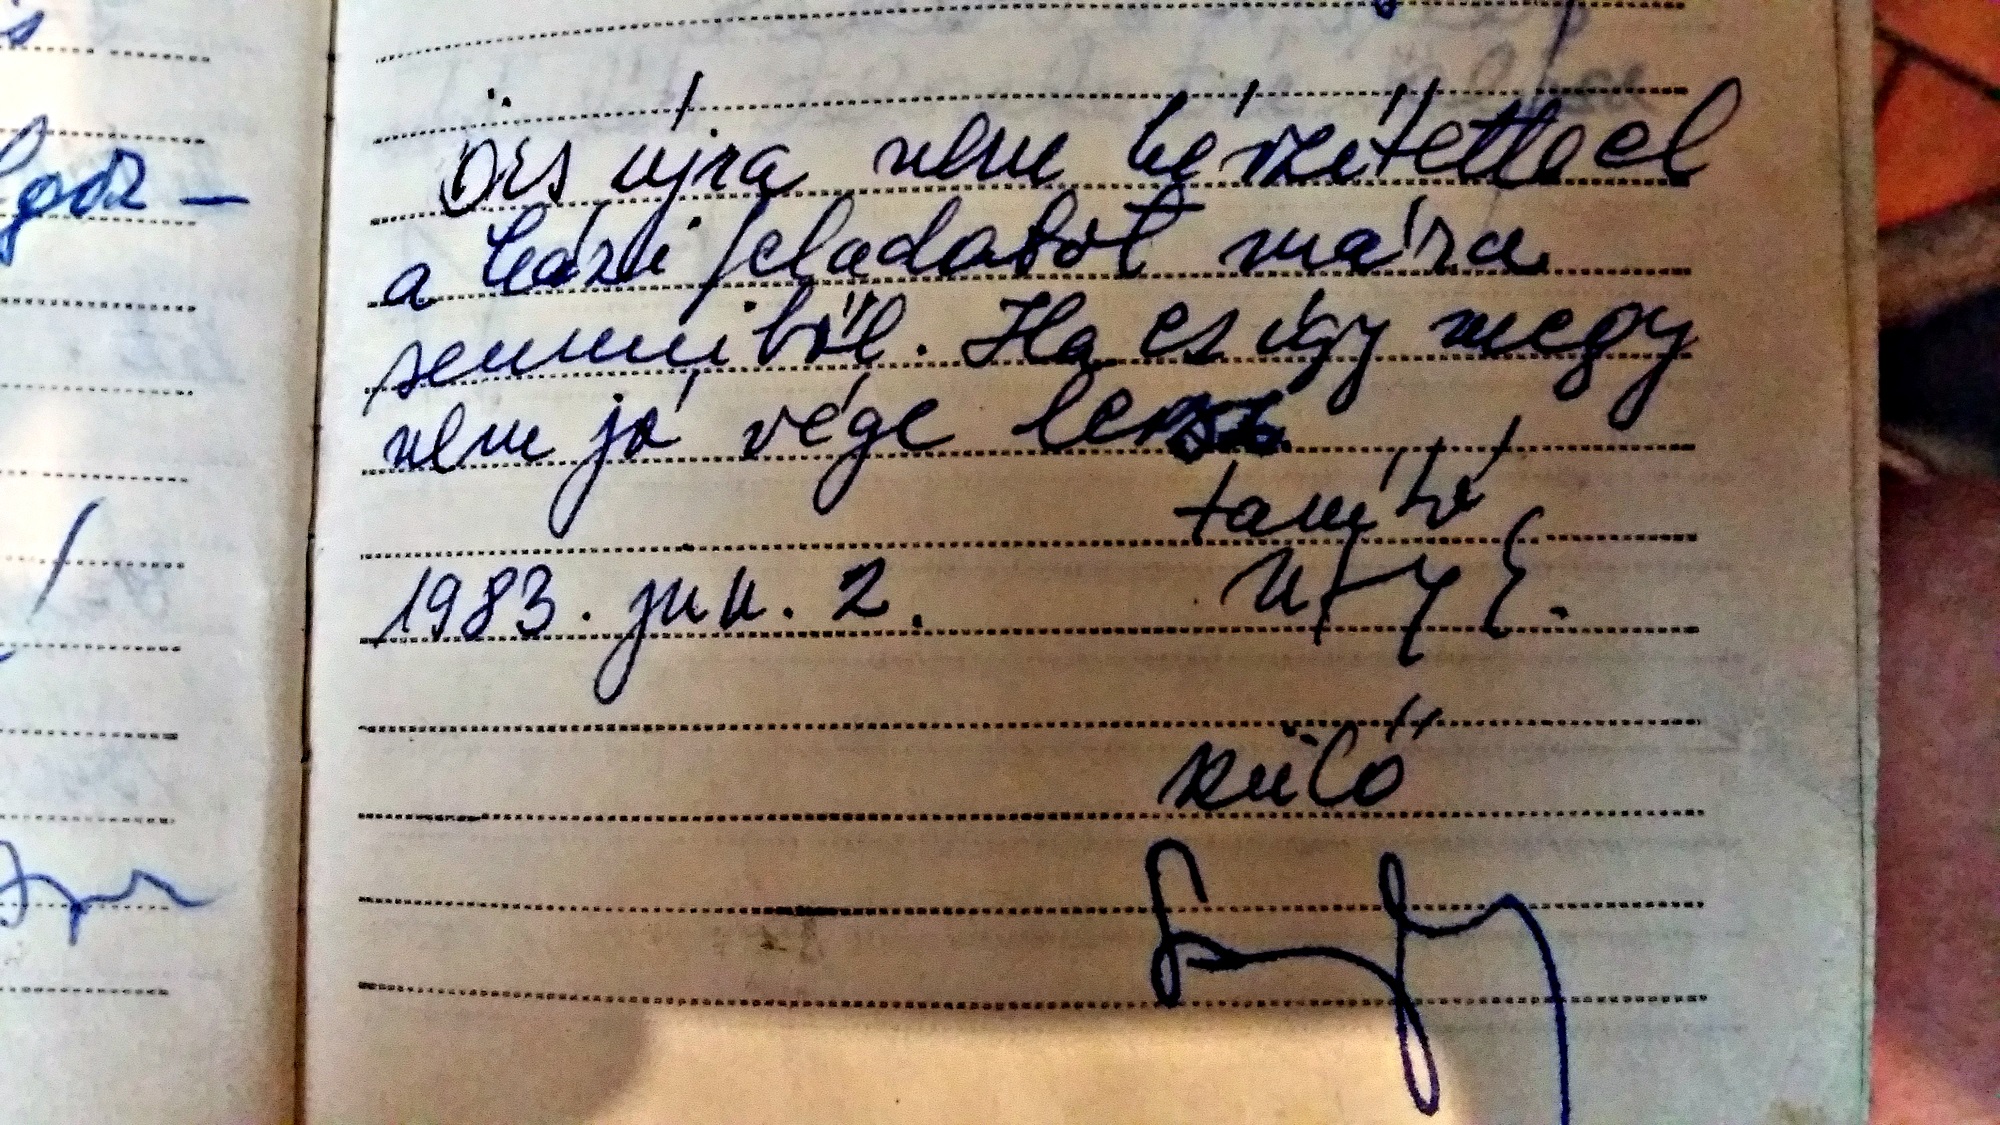 Örs újra nem készítette el
a házi feladatot mára
semmiből. Ha ez így megy
nem jó vége lesz
tanító
1983. jun. 2.
szülő
goz -